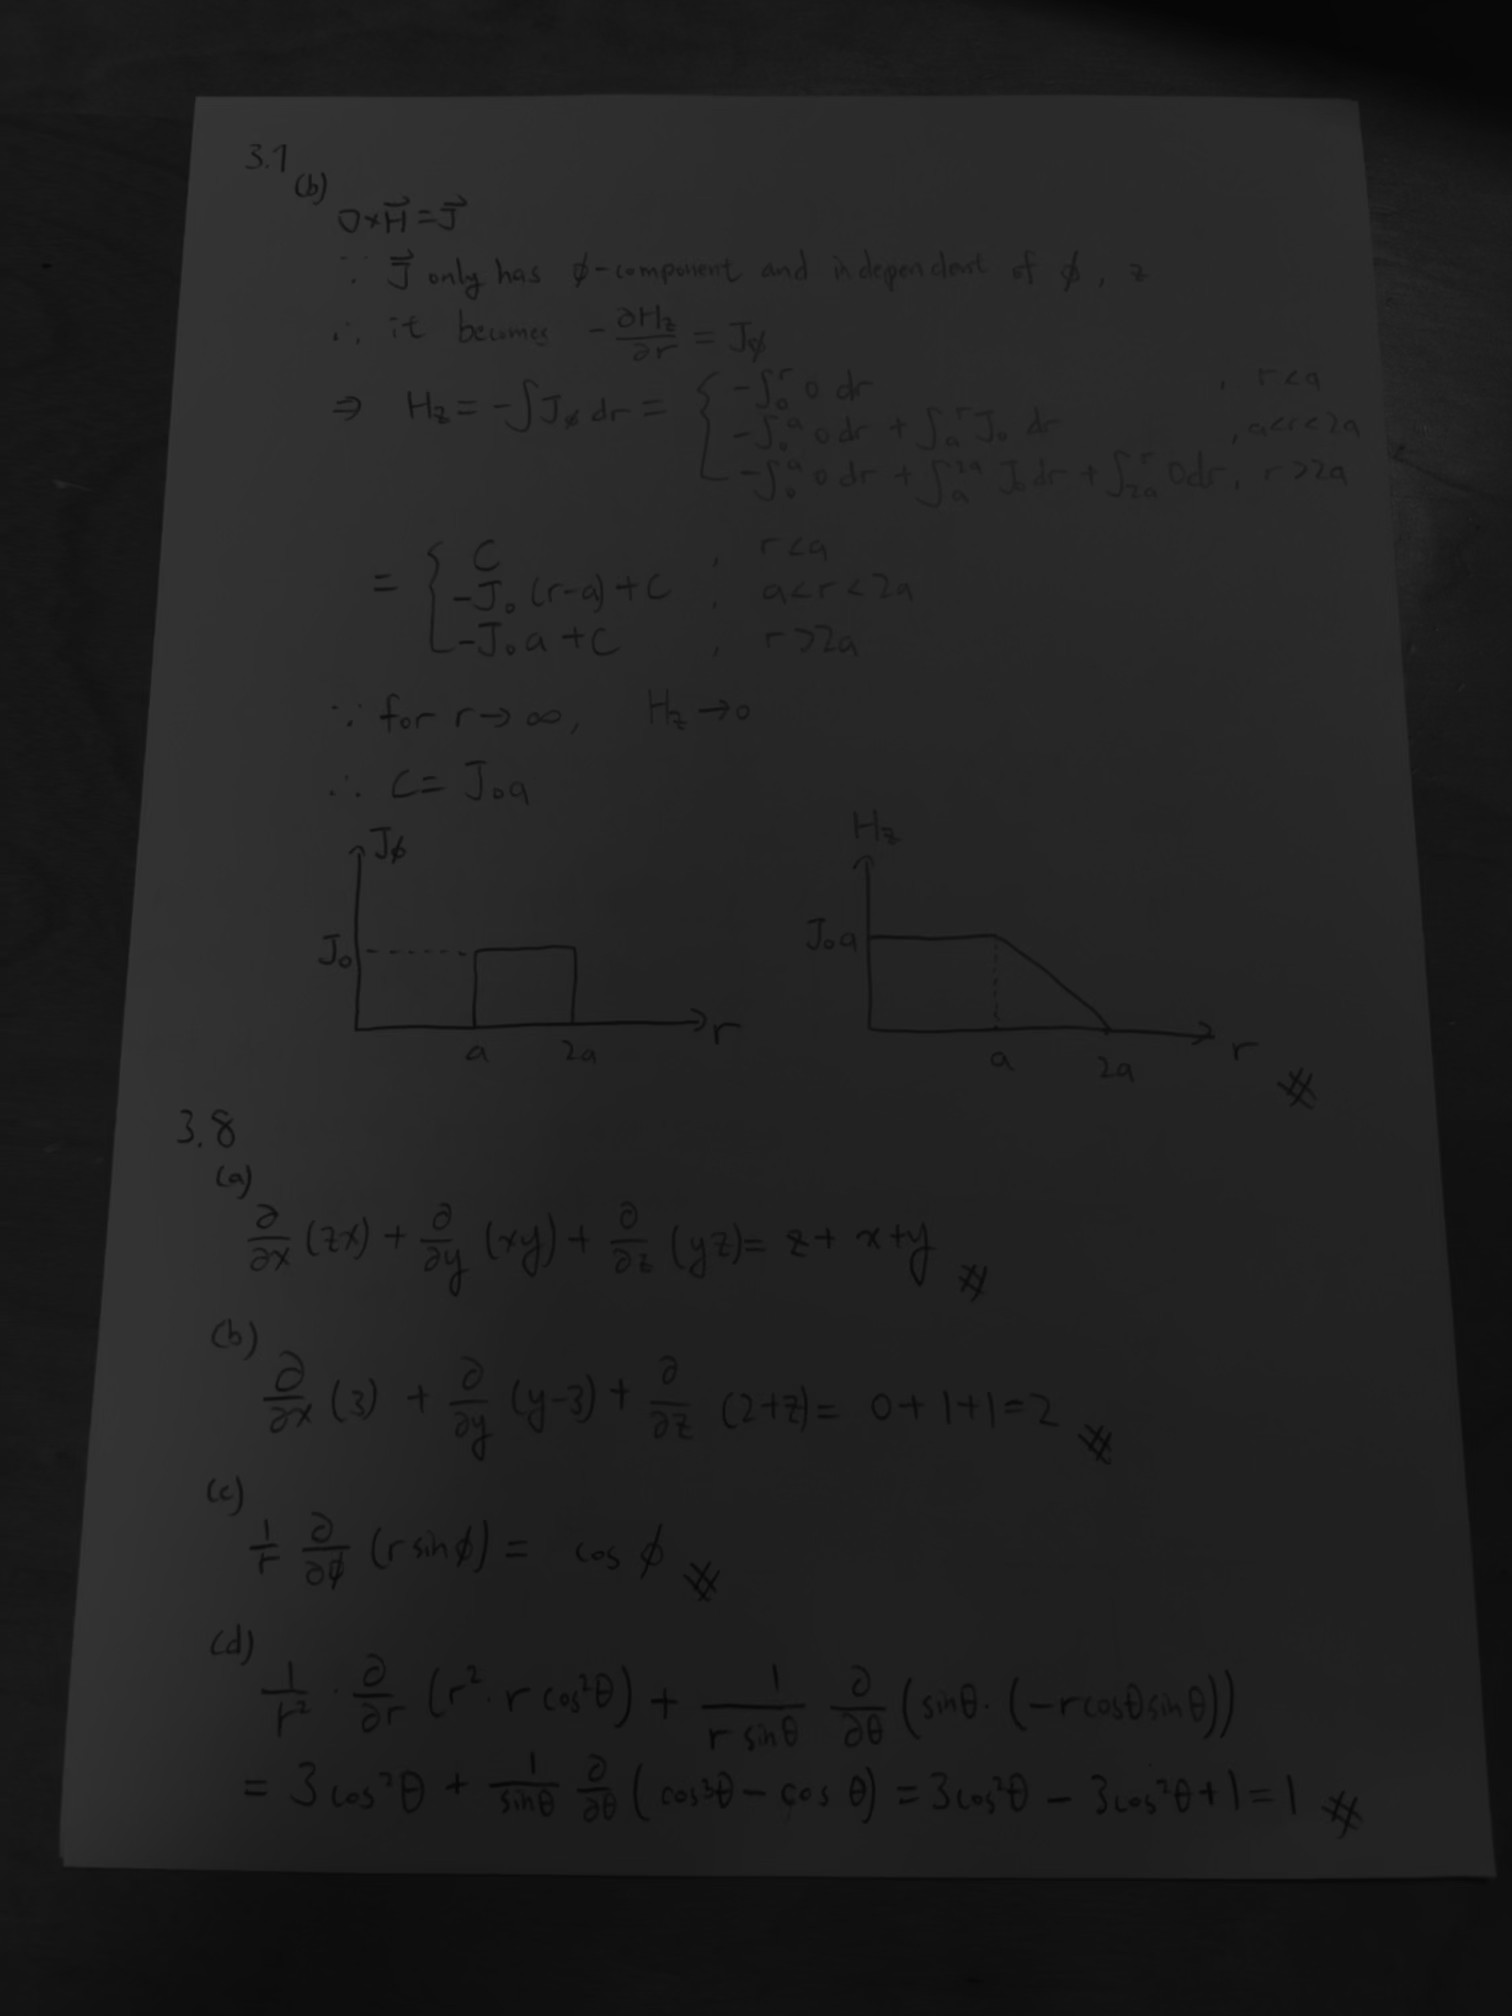 3.7
(b)
∇×H⃗ = J⃗
∵ J⃗ only has φ-component and independent of φ, z
∴ it becomes -∂Hz/∂r = Jφ
⇒ Hz = -∫Jφ dr = { -∫₀ʳ 0 dr , r<a
-∫₀ᵃ 0 dr + ∫ₐʳ J₀ dr , a<r<2a
-∫₀ᵃ 0 dr + ∫ₐ²ᵃ J₀ dr + ∫₂ₐʳ 0 dr, r>2a
= { C , r<a
-J₀(r-a)+C , a<r<2a
-J₀a+C , r>2a
∵ for r→∞, Hz→0
∴ C= J₀a
Jφ J₀ a 2a r
Hz J₀a a 2a r
3.8
(a)
∂/∂x (zx) + ∂/∂y (xy) + ∂/∂z (yz) = z + x + y
(b)
∂/∂x (3) + ∂/∂y (y-3) + ∂/∂z (2+z) = 0+1+1=2
(c)
1/r ∂/∂φ (r sinφ) = cos φ
(d)
1/r² · ∂/∂r (r²·r cos²θ) + 1/(r sinθ) ∂/∂θ (sinθ·(-r cosθ sinθ))
= 3cos²θ + 1/sinθ ∂/∂θ (cos³θ - cos θ) = 3cos²θ - 3cos²θ+1=1